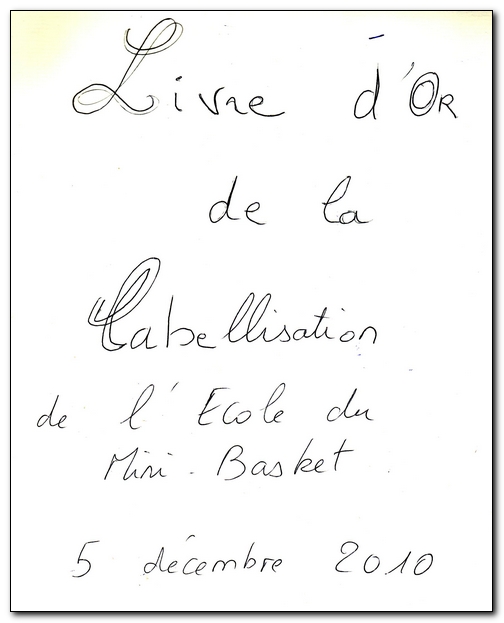 Livre d'Or
de la
Labellisation
de l'Ecole du
Mini-Basket
5 décembre 2010